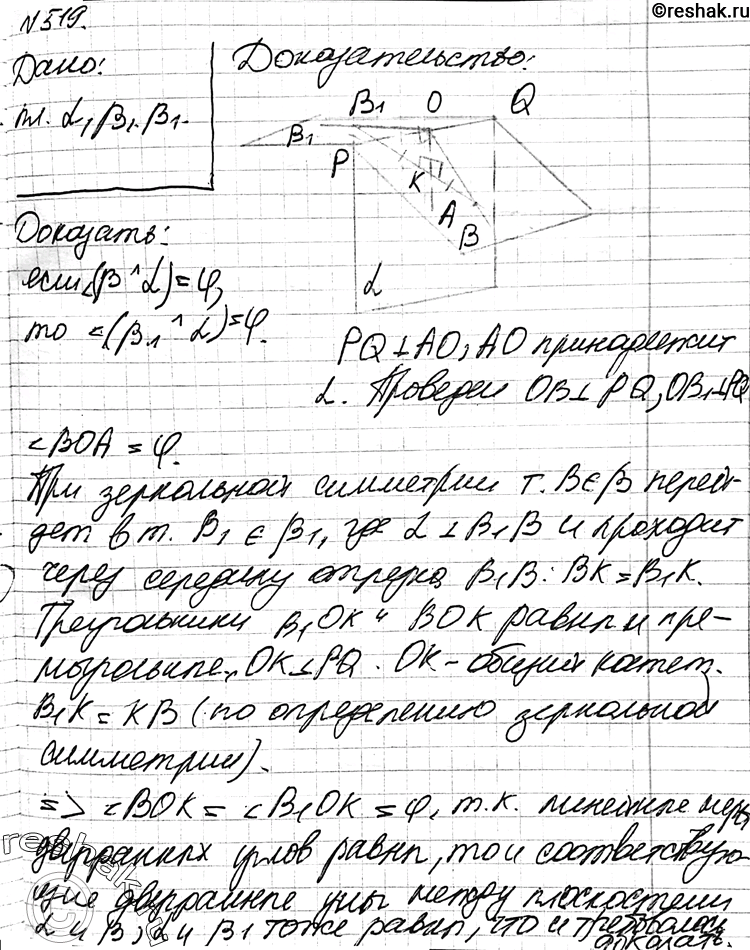 ©reshak.ru
№519.
Дано:
пл. α, β, β₁.
Доказать:
если ∠(β ^ α) = φ,
то ∠(β₁ ^ α) = φ.
Доказательство:
B₁ O Q
β₁
P
K
A
B
α
PQ ⊥ AO, AO принадлежит
α. Проведем OB ⊥ PQ, OB₁ ⊥ PQ
∠BOA = φ.
При зеркальной симметрии т. B ∈ β перей-
дет в т. B₁ ∈ β₁, где α ⊥ B₁B и проходит
через середину отрезка B₁B: BK = B₁K.
Треугольники B₁OK и BOK равны и пря-
моугольные, OK ⊥ PQ. OK - общий катет.
B₁K = KB (по определению зеркальной
симметрии).
=> ∠BOK = ∠B₁OK = φ, т.к. линейные меры
двугранных углов равны, то и соответствую-
щие двугранные углы между плоскостями
α и β, α и β₁ тоже равны, что и требовалось
доказать.
reshak.ru